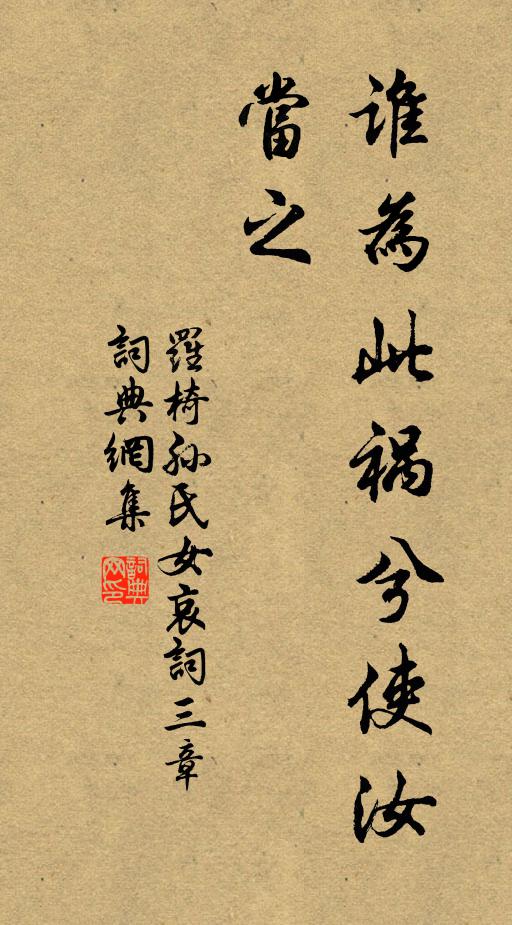 誰為此禍兮使汝
當之
羅椅孫氏女哀詞三章
詞典網集
詞典网印